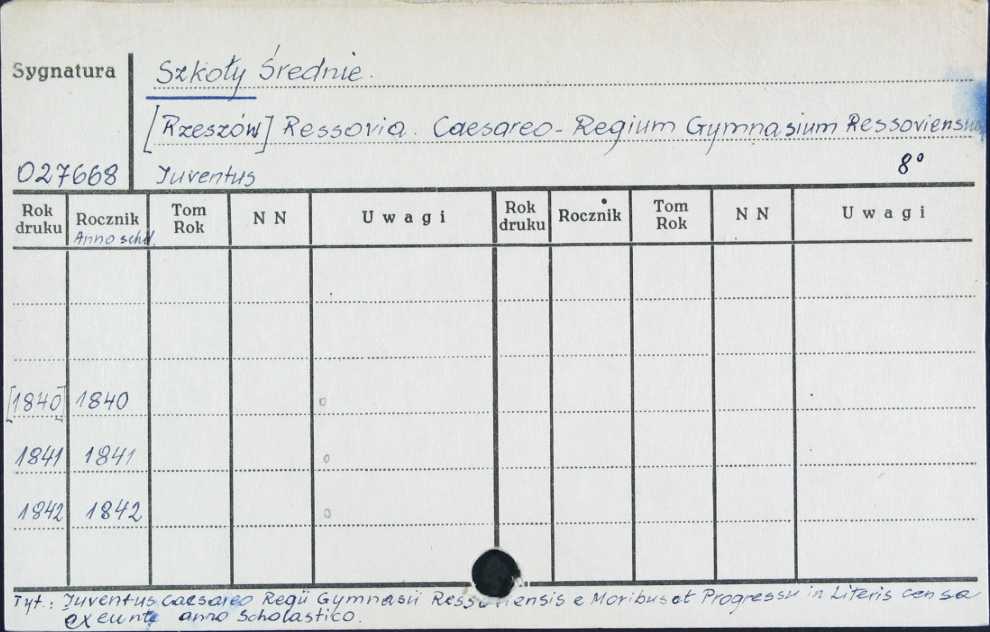 Sygnatura
Szkoły Średnie.
[Rzeszów] Ressovia. Caesareo-Regium Gymnasium Ressoviensis
027668 Iuventus 8°
Rok druku Rocznik Anno schol. Tom Rok N N Uwagi Rok druku Rocznik Tom Rok N N Uwagi
[1840] 1840 o
1841 1841 o
1842 1842 o
Tyt.: Iuventus caesareo Regii Gymnasii Ressoviensis e Moribus et Progressu in Literis censa
exeunte anno Scholastico.